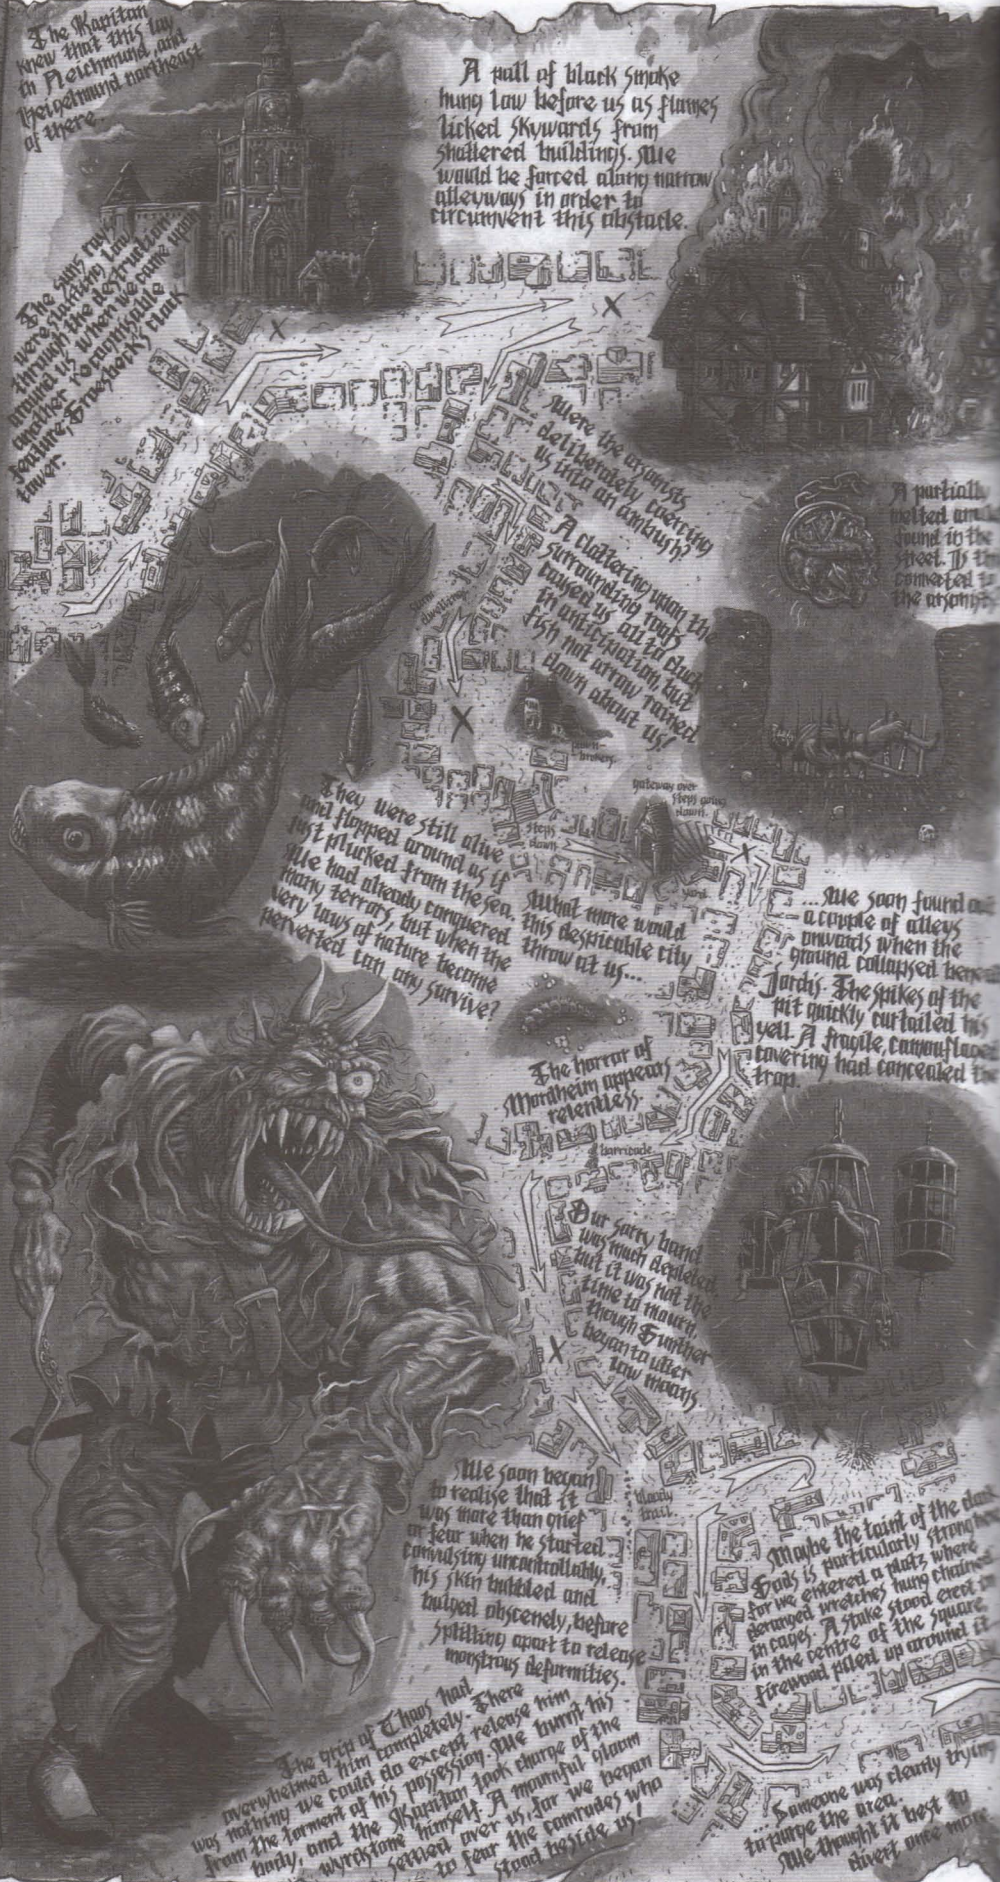 The Kapitan
knew that this lay
in Reichmund, and
Heigelmund northeast
of there.
A pall of black smoke
hung low before us as flames
licked skywards from
shattered buildings. We
would be forced along narrow
alleyways in order to
circumvent this obstacle.
The suns rays
were slanting low
through the destruction
around us when we came upon
another recognisable
feature,
tower.
Were the arsonists
deliberately coercing
us into an ambush?
A partially
melted
found in the
street. Is
connected to
the arsonist
A clattering upon the
surrounding roofs
caused us all to duck
in anticipation, but
fish not arrow rained
down about us!
dwelling
brokers
gateway over
steps going
down.
steps
down
yard.
They were still alive
and flopped around as if
just plucked from the sea.
We had already conquered
many terrors, but when the
very laws of nature become
perverted can any survive?
What more would
this despicable city
throw at us...
...We soon found out
a couple of alleys
onwards when the
ground collapsed
Jordis. The spikes of the
pit quickly curtailed his
yell. A fragile, camouflaged
covering had concealed the
trap.
The horror of
Mordheim appears
relentless.
barricade
Our sorry band
was much depleted,
but it was not the
time to mourn,
though Gunther
began to utter
low moans
We soon began
to realise that it
was more than grief
or fear when he started
convulsing uncontrollably,
his skin bubbled and
bulged obscenely, before
splitting apart to release
monstrous deformities.
bloody
trail.
Maybe the taint of the dark
Gods is particularly strong
for we entered a platz where
deranged wretches hung chained
in cages. A stake stood erect in
in the centre of the square,
firewood piled up around it
The grip of Chaos had
overwhelmed him completely. There
was nothing we could do except release him
from the torment of his possession. We burnt his
body, and the Kapitan took charge of the
wyrdstone himself. A mournful gloom
settled over us, for we began
to fear the comrades who
stood beside us!
...Someone was clearly trying
to purge the area.
We thought it best to
divert once more